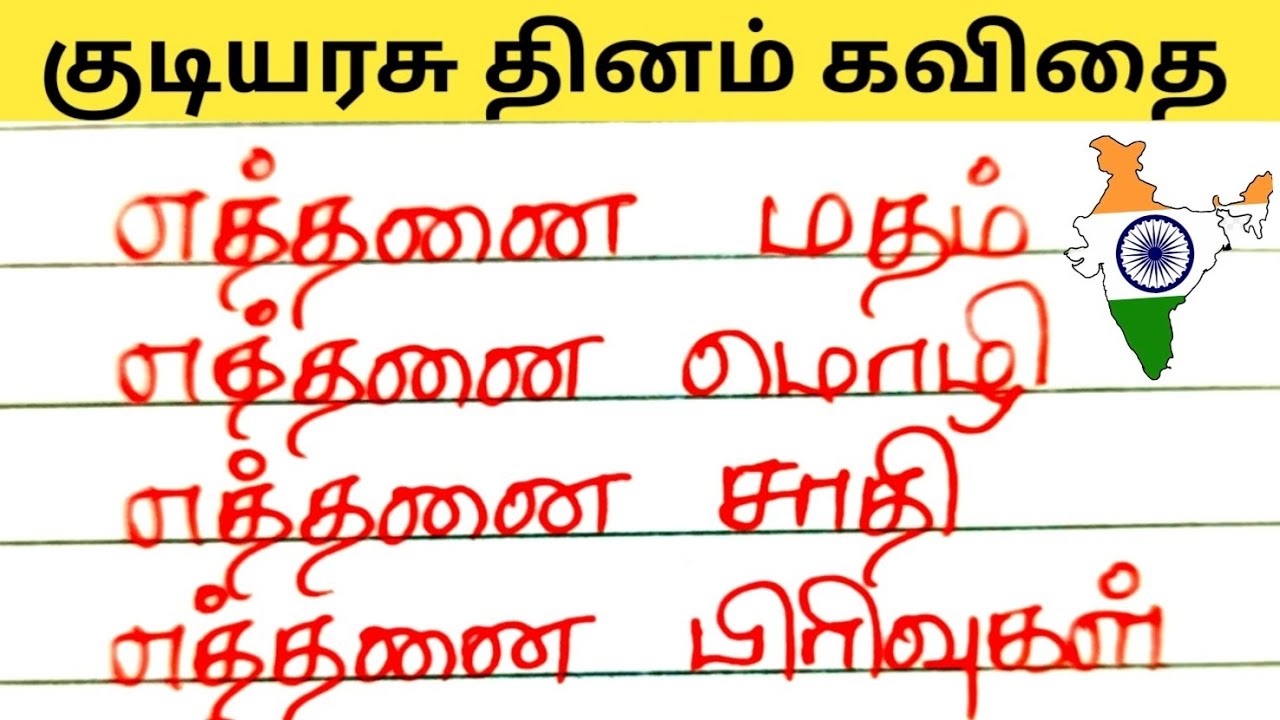 குடியரசு தினம் கவிதை
எத்தனை மதம்
எத்தனை மொழி
எத்தனை சாதி
எத்தனை பிரிவுகள்